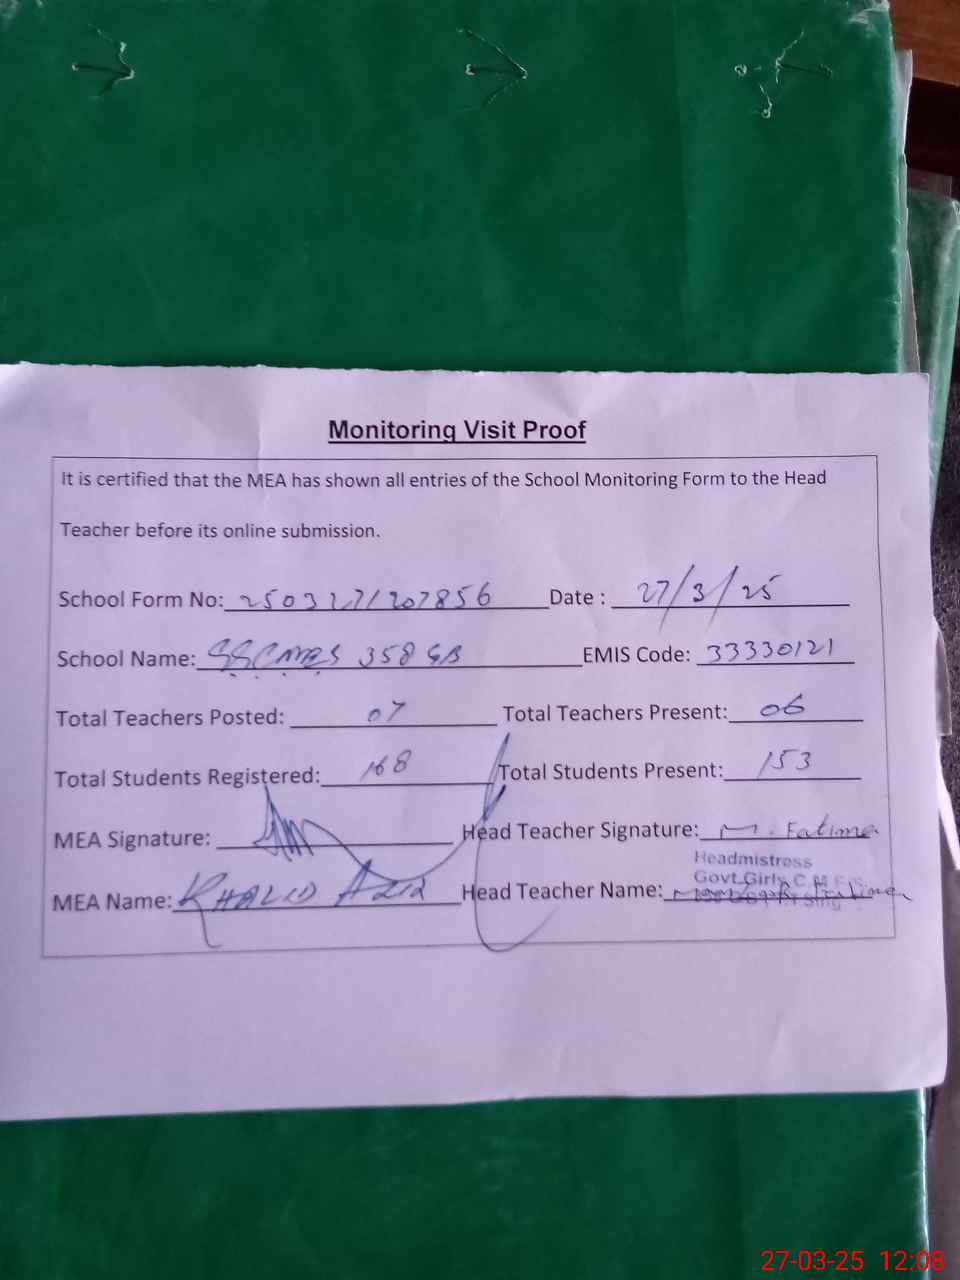 Monitoring Visit Proof
It is certified that the MEA has shown all entries of the School Monitoring Form to the Head
Teacher before its online submission.
School Form No: 250327/207856 Date : 27/3/25
School Name: 358 GB EMIS Code: 33330121
Total Teachers Posted: 07 Total Teachers Present: 06
Total Students Registered: 168 Total Students Present: 153
MEA Signature: Head Teacher Signature: M. Fatima
Headmistress
Govt.Girls C.M.E.S
MEA Name: KHALID AZIZ Head Teacher Name: Fatima
27-03-25 12:08